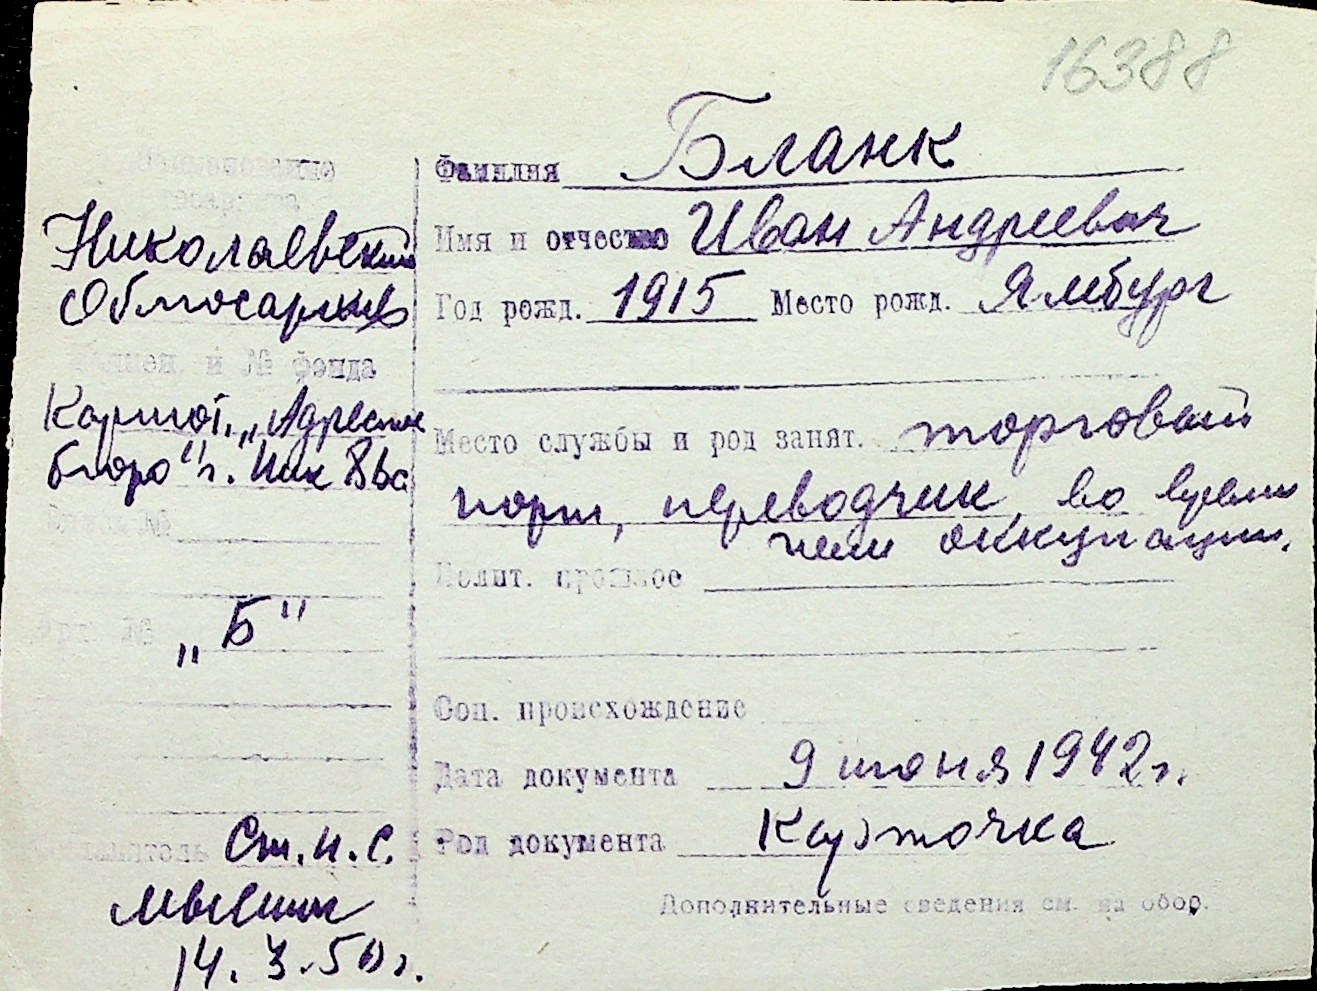 16388
Фамилия Бланк
Имя и отчество Иван Андреевич
Год рожд. 1915 Место рожд. Ямбург
Место службы и род занят. торговый
порт, переводчик, во время
неи оккупации.
Полит. прошлое
Соц. происхождение
Дата документа 9 июня 1942 г.
Род документа Карточка
Дополнительные сведения см. на обор.
Николаевский
Облгосархив
и № фонда
Картот. „Адресное
бюро" г. Ник
„Б"
Ст. н. с.
14.3.50 г.